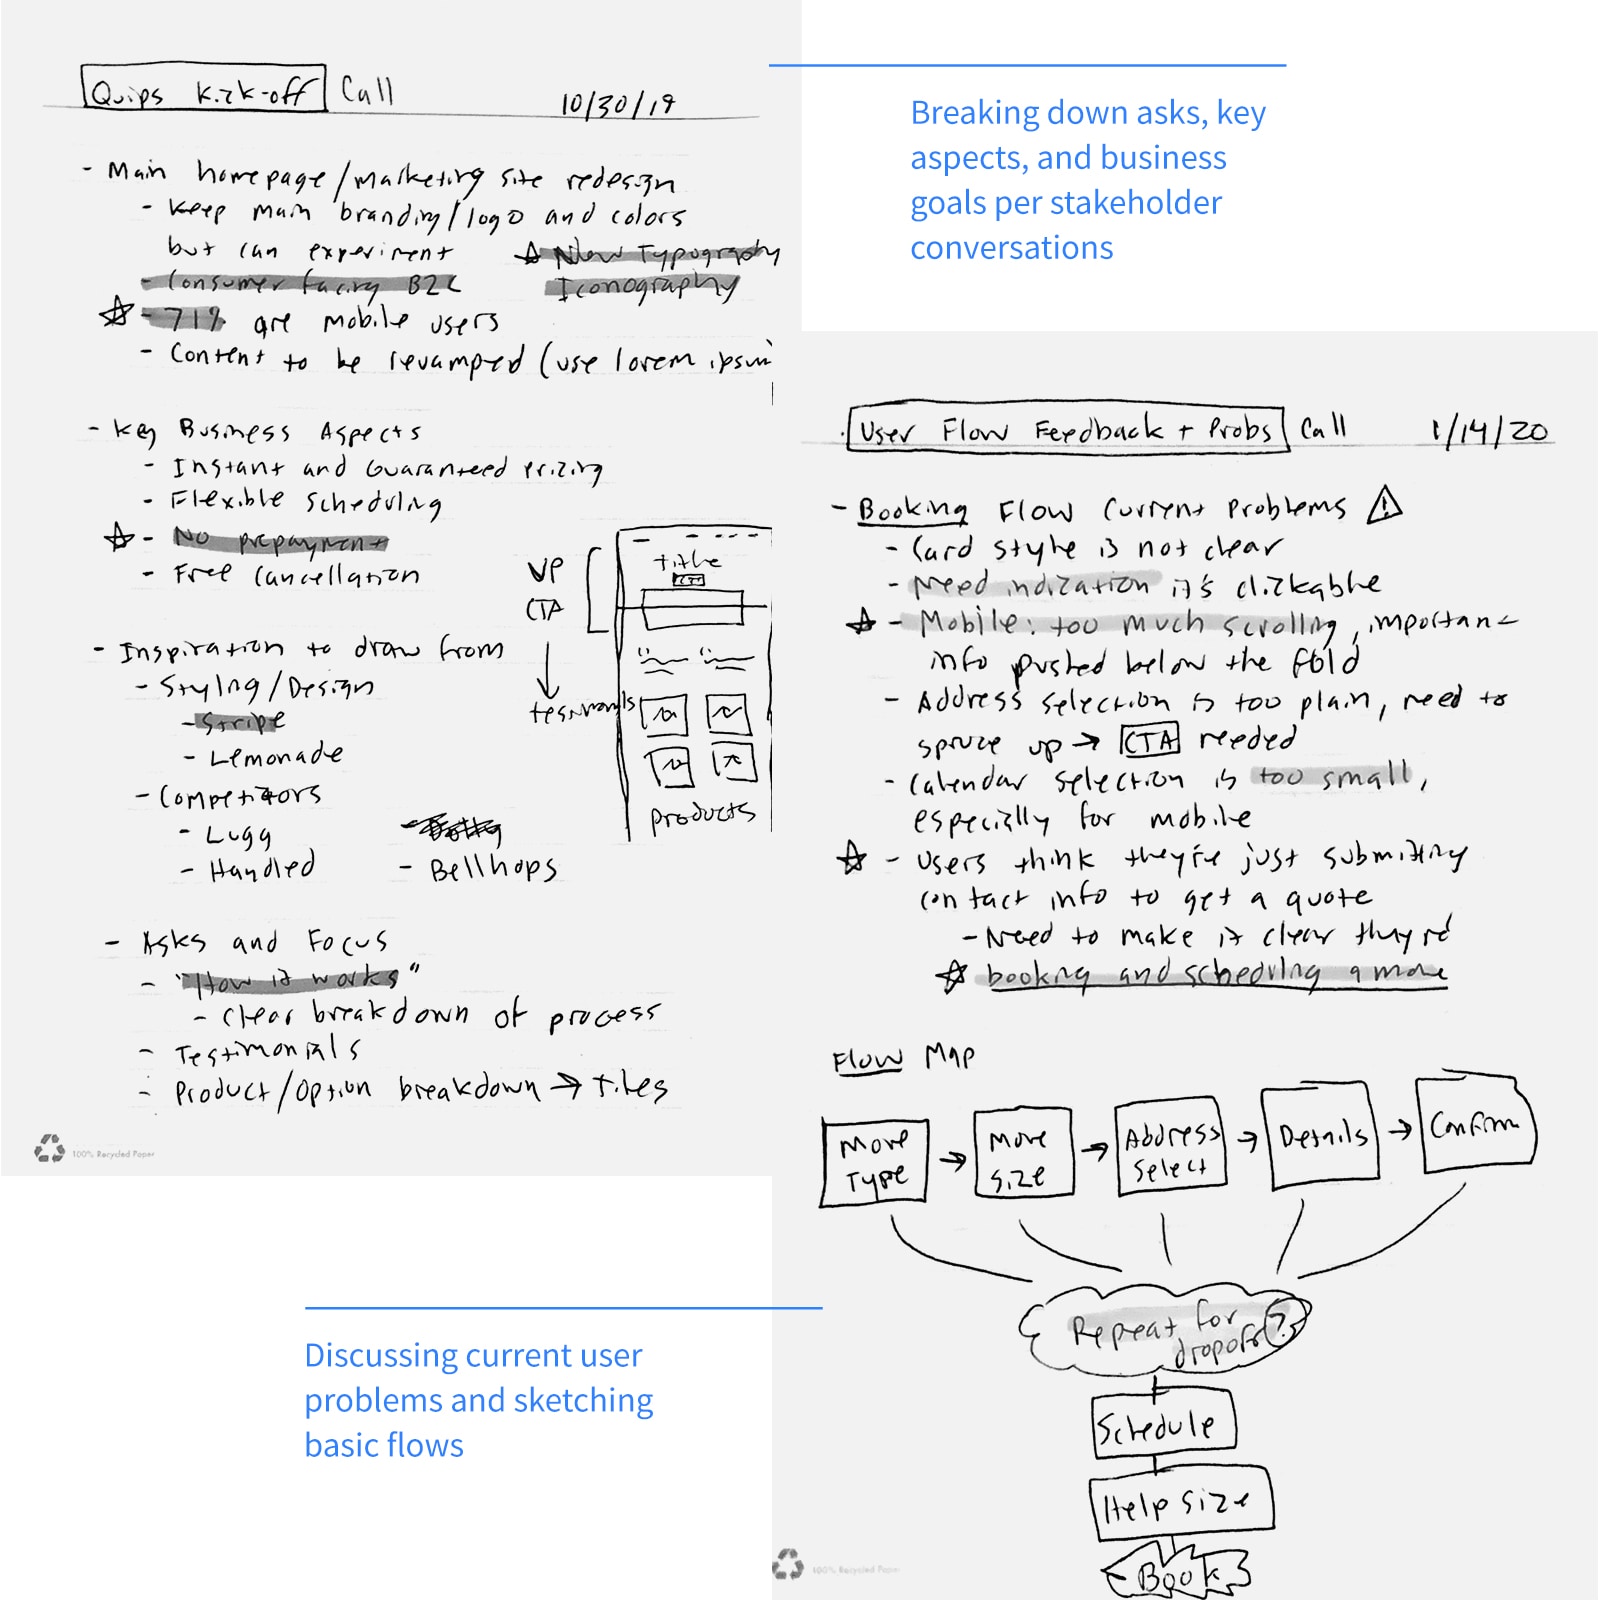 Quips Kick-off Call 10/30/19
- Main homepage/marketing site redesign
- Keep main branding/logo and colors
but can experiment ☆ New Typography
- Consumer facing B2C Iconography
☆ - 71% are mobile users
- Content to be revamped (use lorem ipsum
- Key Business Aspects
- Instant and Guaranteed Pricing
- Flexible Scheduling
☆ - No prepayment
- Free Cancellation
VP
CTA
testimonials
title
CTA
products
- Inspiration to draw from
- Styling/Design
- Stripe
- Lemonade
- Competitors
- Lugg
- Handled
- Bellhops
- Asks and Focus
- "How it works"
- Clear breakdown of process
- Testimonials
- Product/Option breakdown → Tiles
100% Recycled Paper
Breaking down asks, key
aspects, and business
goals per stakeholder
conversations
User Flow Feedback + Probs Call 1/14/20
- Booking Flow Current Problems ⚠
- Card style is not clear
- Need indication it's clickable
☆ - Mobile: too much scrolling, important
info pushed below the fold
- Address selection is too plain, need to
spruce up → CTA needed
- Calendar selection is too small,
especially for mobile
☆ - Users think they're just submitting
contact info to get a quote
- Need to make it clear they're
☆ booking and scheduling a move
Flow Map
Move Type → Move Size → Address Select → Details → Confirm
Repeat for
dropoff?
Schedule
Help size
Book
100% Recycled Paper
Discussing current user
problems and sketching
basic flows